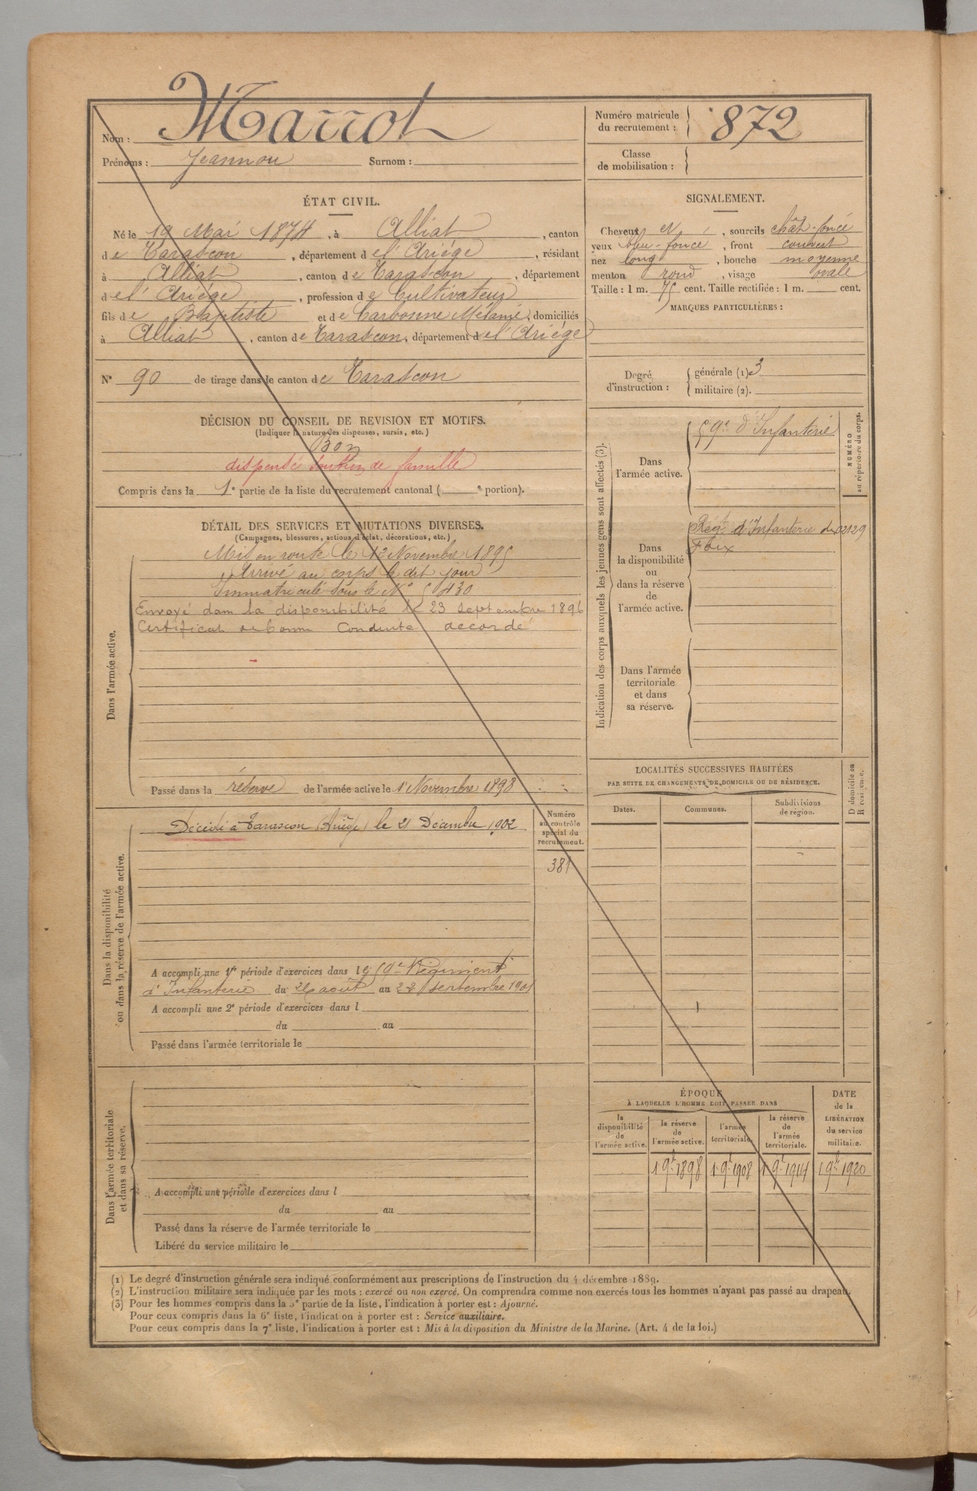 Nom : Marrot
Prénoms : Jeannou Surnom :
Numéro matricule du recrutement : 872
Classe de mobilisation :
ÉTAT CIVIL.
Né le 19 Mai 1874, à Alliat, canton
de Tarascon, département de l'Ariége, résidant
à Alliat, canton de Tarascon, département
de l'Ariége, profession de Cultivateur
fils de Baptiste et de Carbonne Mélanie, domiciliés
à Alliat, canton de Tarascon, département de l'Ariége
N° 90 de tirage dans le canton de Tarascon
SIGNALEMENT.
Cheveux N, sourcils chât-foncé
yeux bleu-foncé, front couvert
nez long, bouche moyenne
menton rond, visage ovale
Taille : 1 m. 75 cent. Taille rectifiée : 1 m. cent.
MARQUES PARTICULIÈRES :
Degré d'instruction : générale (1) 3
militaire (2).
DÉCISION DU CONSEIL DE REVISION ET MOTIFS.
(Indiquer la nature des dispenses, sursis, etc.)
Bon
dispensé soutien de famille
Compris dans la 1e partie de la liste du recrutement cantonal ( e portion).
DÉTAIL DES SERVICES ET MUTATIONS DIVERSES.
(Campagnes, blessures, actions d'éclat, décorations, etc.)
Dans l'armée active.
Mis en route le 12 Novembre 1895
Arrivé au corps le dit jour
Immatriculé sous le N°
Envoyé dans la disponibilité le 23 Septembre 1896
Certificat de bonne Conduite accordé
Passé dans la réserve de l'armée active le 1er Novembre 1898
Indication des corps auxquels les jeunes gens sont affectés (3).
NUMÉRO au répertoire du corps.
Dans l'armée active.
59e d'Infanterie
Dans la disponibilité ou dans la réserve de l'armée active.
Rég. d'Infanterie de 02129
Foix
Dans l'armée territoriale et dans sa réserve.
LOCALITÉS SUCCESSIVES HABITÉES
PAR SUITE DE CHANGEMENTS DE DOMICILE OU DE RÉSIDENCE.
Dates. Communes. Subdivisions de région.
D domicile ou R résidence.
Dans la disponibilité ou dans la réserve de l'armée active.
Numéro au contrôle spécial du recrutement.
381
Décédé à Tarascon (Ariège) le 21 Décembre 1902
A accompli une 1re période d'exercices dans le 59e Régiment
d'Infanterie du 26 août au 22 septembre 1901
A accompli une 2e période d'exercices dans l
du au
Passé dans l'armée territoriale le
Dans l'armée territoriale et dans sa réserve.
A accompli une période d'exercices dans l
du au
Passé dans la réserve de l'armée territoriale le
Libéré du service militaire le
ÉPOQUE
À LAQUELLE L'HOMME DOIT PASSER DANS
la disponibilité de l'armée active. la réserve de l'armée active. l'armée territoriale. la réserve de l'armée territoriale.
DATE de la LIBÉRATION du service militaire.
1 9bre 1898 1 9bre 1908 1 9bre 1914 1 9bre 1920
(1) Le degré d'instruction générale sera indiqué conformément aux prescriptions de l'instruction du 4 décembre 1889.
(2) L'instruction militaire sera indiquée par les mots : exercé ou non exercé. On comprendra comme non exercés tous les hommes n'ayant pas passé au drapeau.
(3) Pour les hommes compris dans la 5e partie de la liste, l'indication à porter est : Ajourné.
Pour ceux compris dans la 6e liste, l'indication à porter est : Service auxiliaire.
Pour ceux compris dans la 7e liste, l'indication à porter est : Mis à la disposition du Ministre de la Marine. (Art. 4 de la loi.)